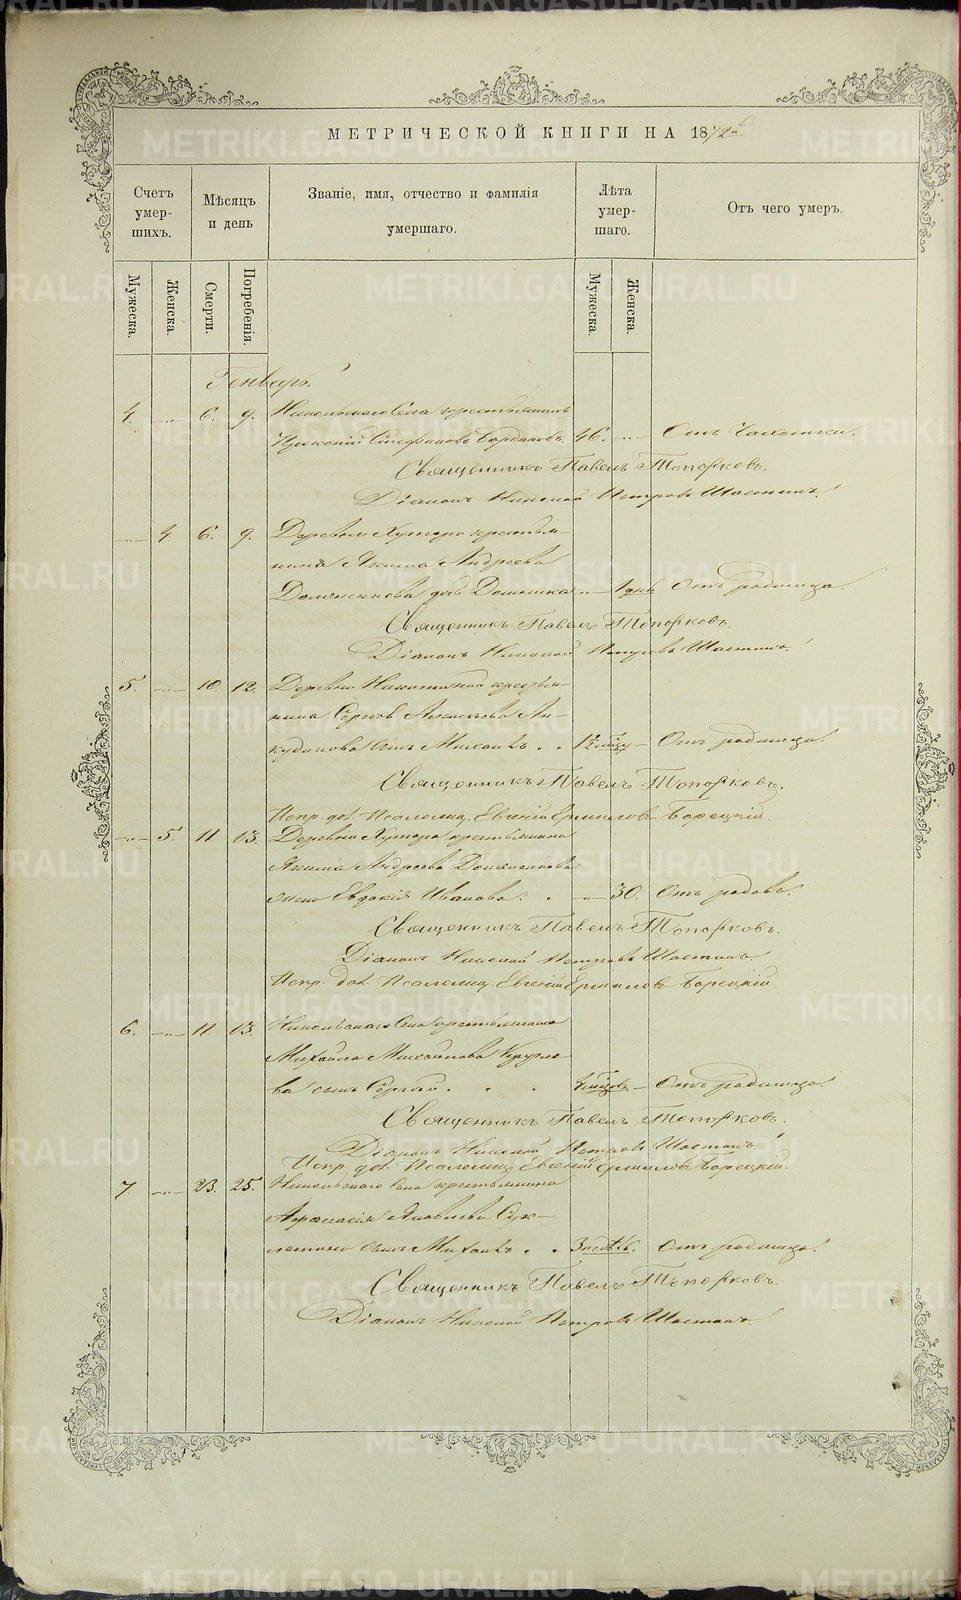 МЕТРИЧЕСКОЙ КНИГИ НА 1872й
Счетъ умер-шихъ.
Мѣсяцъ и день
Званіе, имя, отчество и фамилія
умершаго.
Лѣта умер-шаго.
Отъ чего умеръ.
Мужеска.
Женска.
Смерти.
Погребенія.
Мужеска.
Женска.
Генварь.
4. 6. 9. Никольскаго Села крестьянинъ
Стефановъ 46. Отъ Чахотки.
Священникъ Павелъ Топорковъ.
Діаконъ Николай Петровъ
4. 6. 9. Деревни Хутора крестья-
нина Якима Андреева
дочь Домника 1 дня Отъ родимца.
Священникъ Павелъ Топорковъ.
Діаконъ Николай Петровъ
5. 10. 12. Деревни Никитиной крестья-
нина Ан-
кудинова сынъ Михаилъ Отъ родимца.
Священникъ Павелъ Топорковъ.
Испр. дол. Псаломщ. Евгеній Ермиловъ Борецкій.
5. 11. 13. Деревни Хутора крестьянина
Якима Андреева
жена Евдокія Иванова. 30. Отъ родовъ.
Священникъ Павелъ Топорковъ.
Діаконъ Николай Петровъ
Испр. дол. Псаломщ. Евгеній Ермиловъ Борецкій
6. 11. 13. Никольскаго Села крестьянина
Михаила Михайлова
ва сынъ Сергій Отъ родимца.
Священникъ Павелъ Топорковъ.
Діаконъ Николай Петровъ
Испр. дол. Псаломщ. Евгеній Ермиловъ Борецкій.
7. 23. 25. Никольскаго Села крестьянина
Афанасія Яковлева
сынъ Михаилъ 3 недѣль. Отъ родимца.
Священникъ Павелъ Топорковъ.
Діаконъ Николай Петровъ
METRIKI.GASO-URAL.RU